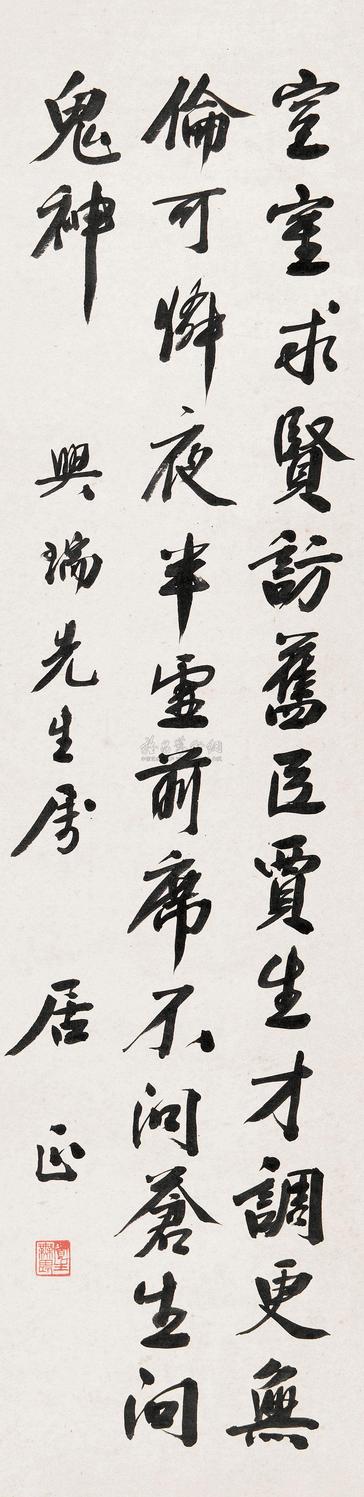 宣室求賢訪舊臣賈生才調更無
倫可憐夜半虛前席不問蒼生問
鬼神
興瑞先生属
居正